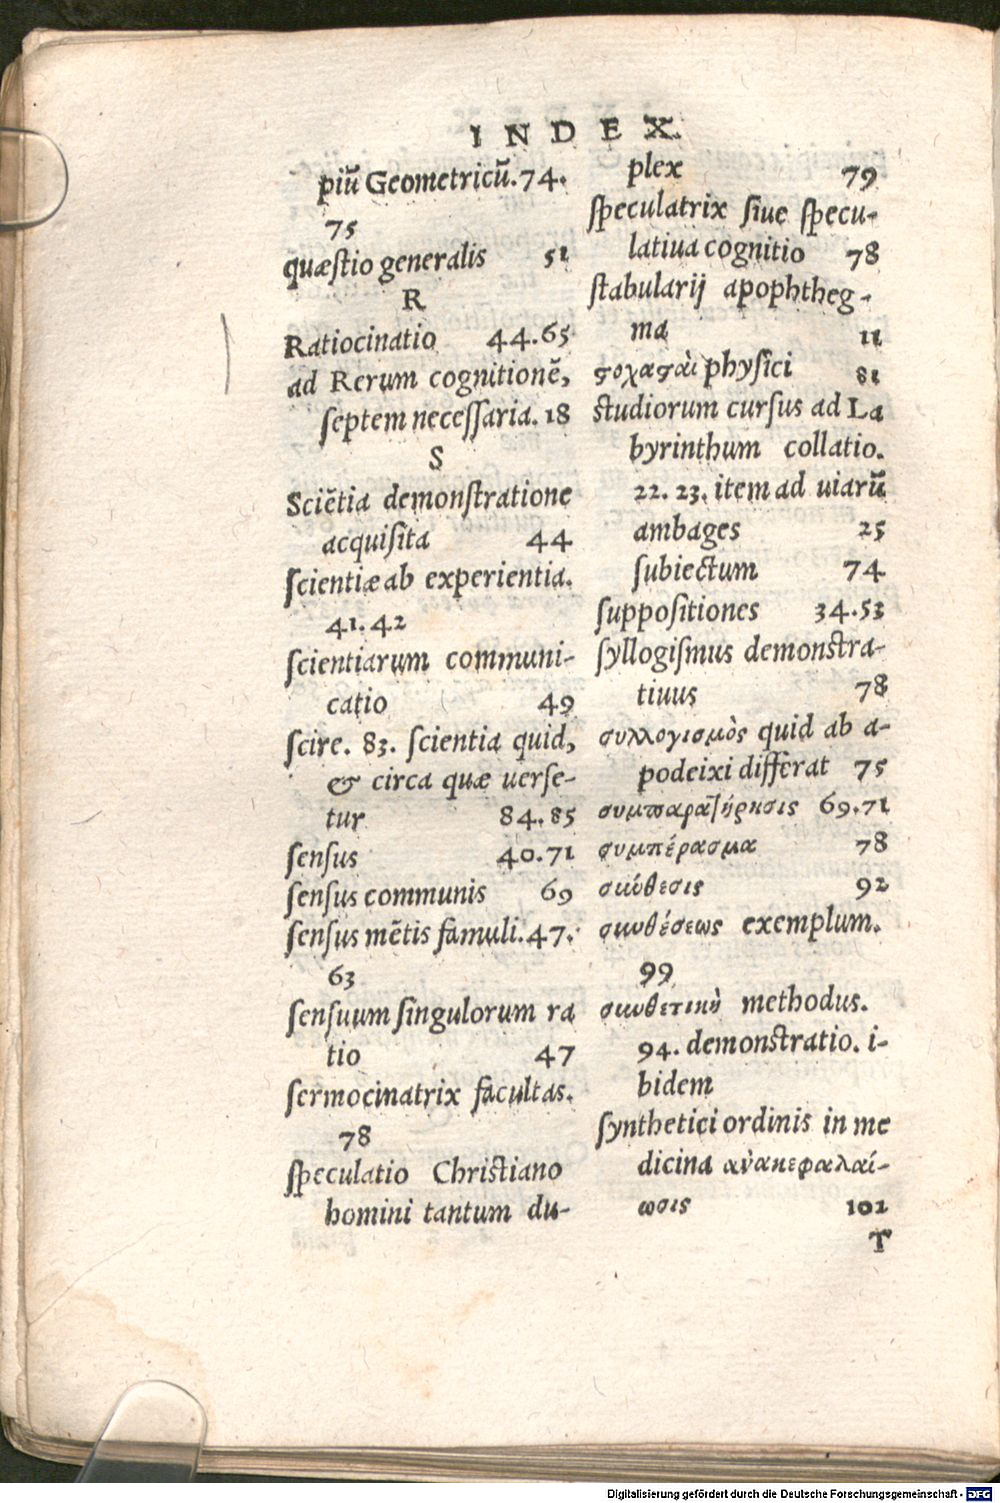 INDEX
piū Geometricū.74.
75
quæstio generalis 51
R
Ratiocinatio 44.65
ad Rerum cognitionē,
septem necessaria. 18
S
Sciētia demonstratione
acquisita 44
scientiæ ab experientia.
41.42
scientiarum communi-
catio 49
scire. 83. scientia quid,
& circa quæ uerse-
tur 84.85
sensus 40.71
sensus communis 69
sensus mētis famuli.47.
63
sensuum singulorum ra
tio 47
sermocinatrix facultas.
78
speculatio Christiano
homini tantum du-
plex 79
speculatrix siue specu-
latiua cognitio 78
stabularij apophtheg-
ma 11
ϛοχαϛαὶ physici 81
studiorum cursus ad La
byrinthum collatio.
22. 23. item ad uiarū
ambages 25
subiectum 74
suppositiones 34.53
syllogismus demonstra-
tiuus 78
συλλογισμὸς quid ab a-
podeixi differat 75
συμπαρατήρησις 69.71
συμπέρασμα 78
σιώθεσις 92
σιωθέσεως exemplum.
99
σιωθετικὴ methodus.
94. demonstratio. i-
bidem
synthetici ordinis in me
dicina ἀνακεφαλαί-
ωσις 102
T
Digitalisierung gefördert durch die Deutsche Forschungsgemeinschaft - DFG